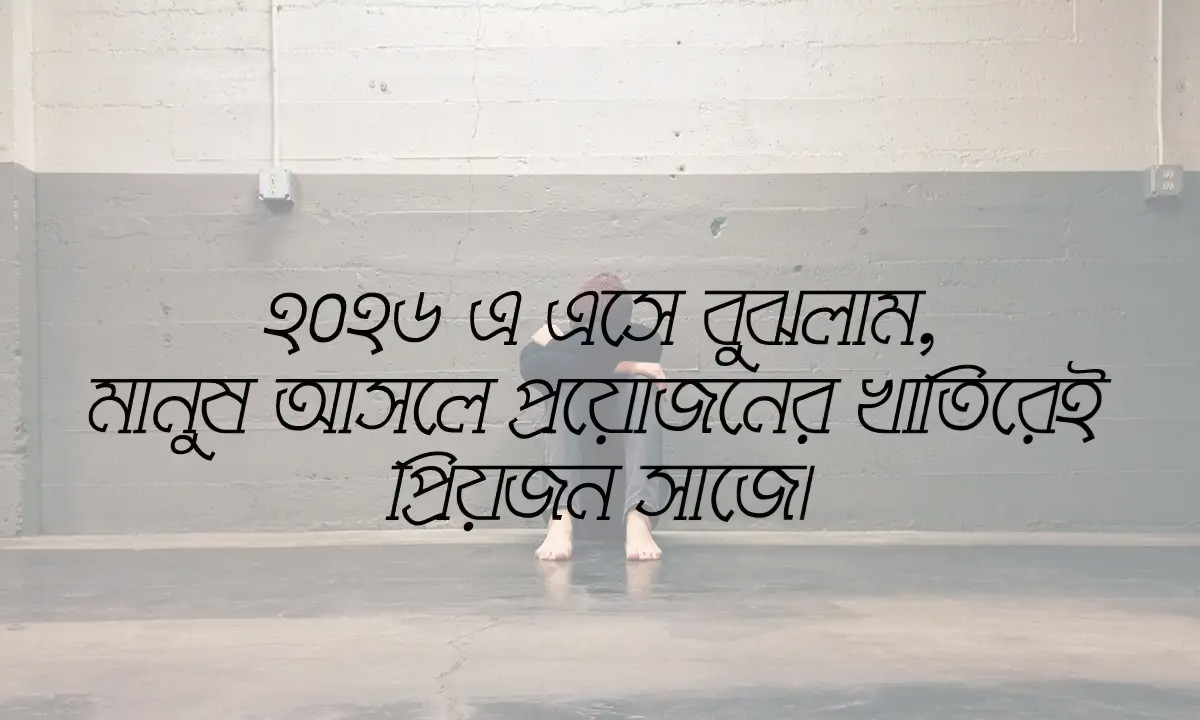 ২০২৬ এ এসে বুঝলাম,
মানুষ আসলে প্রয়োজনের খাতিরেই
প্রিয়জন সাজে।